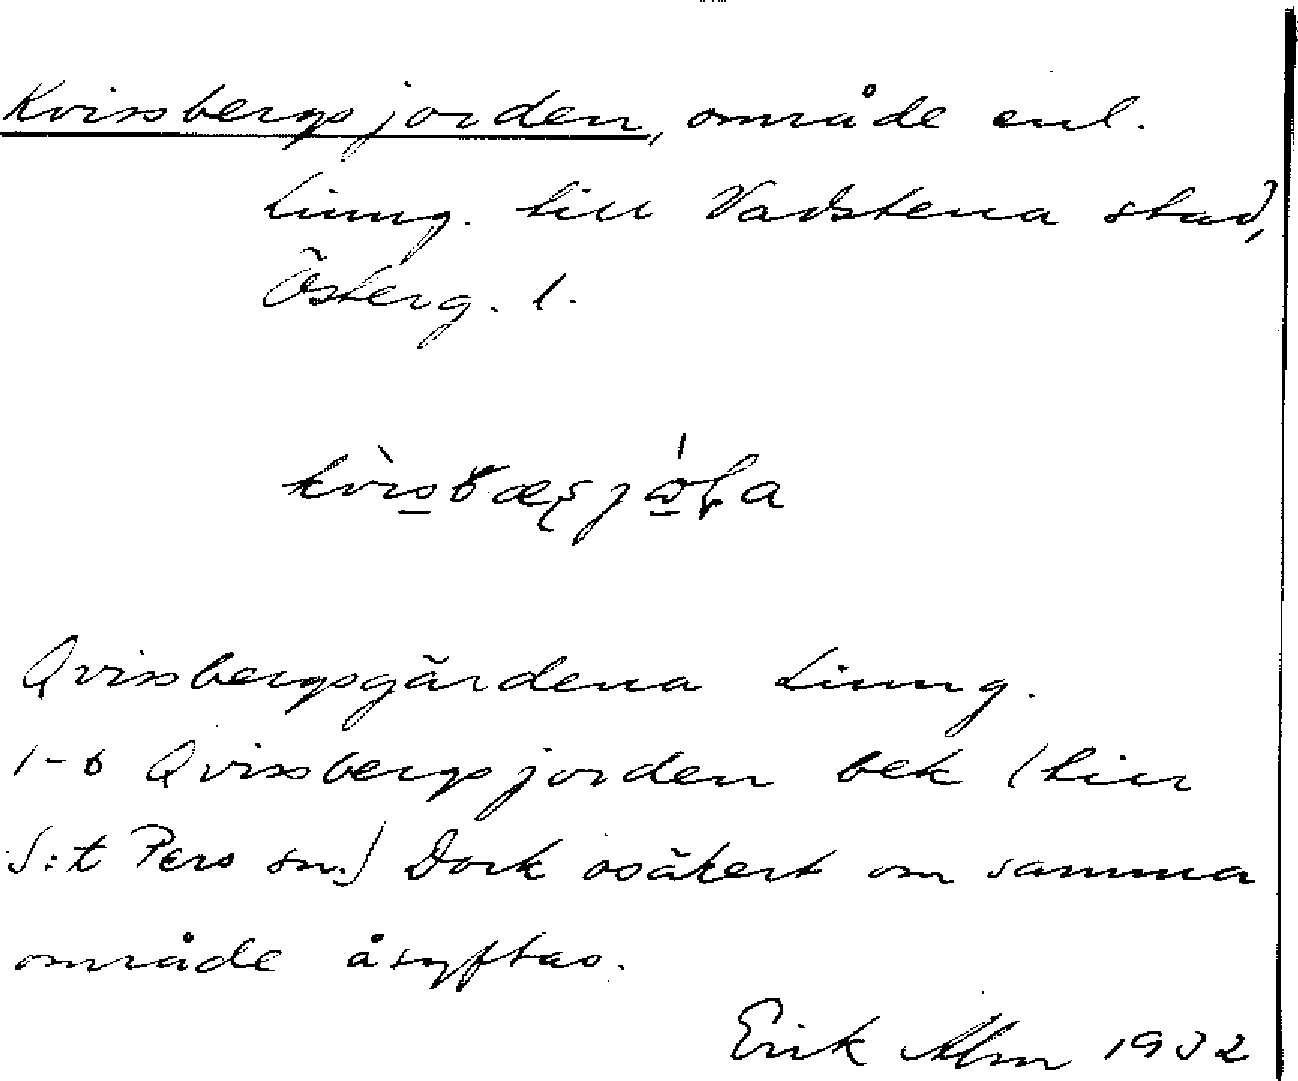 Kvissbergsjorden, område enl.
Ljung. till Vadstena stad,
Österg. l.
Qvissbergsgärdena Ljung.
1-6 Qvissbergsjorden bek (till
S:t Pers sn.) Dock osäkert om samma
område åsyftas.
Erik Alm 1932